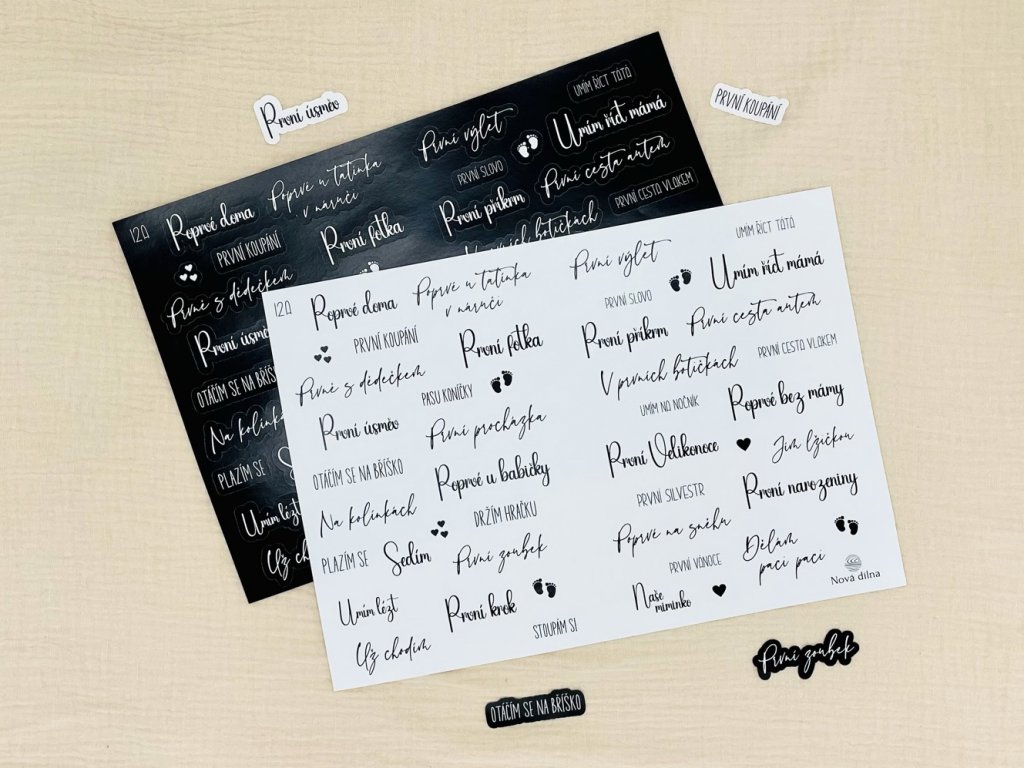 První úsměv
PRVNÍ KOUPÁNÍ
12A
Poprvé doma
Poprvé u tatínka
v náručí
První výlet
UMÍM ŘÍCT TÁTA
Umím říct máma
PRVNÍ SLOVO
První cesta autem
PRVNÍ KOUPÁNÍ
První fotka
První příkrm
PRVNÍ CESTA VLAKEM
Prvně s dědečkem
V prvních botičkách
První úsměv
OTÁČÍM SE NA BŘÍŠKO
Na kolínkách
PLAZÍM SE
Umím lézt
Už chodím
12A
Poprvé doma
Poprvé u tatínka
v náručí
První výlet
UMÍM ŘÍCT TÁTA
Umím říct máma
PRVNÍ KOUPÁNÍ
První fotka
PRVNÍ SLOVO
První příkrm
První cesta autem
Prvně s dědečkem
PASU KONÍČKY
V prvních botičkách
PRVNÍ CESTA VLAKEM
První úsměv
První procházka
UMÍM NA NOČNÍK
Poprvé bez mámy
OTÁČÍM SE NA BŘÍŠKO
Poprvé u babičky
První Velikonoce
Jím lžičkou
Na kolínkách
DRŽÍM HRAČKU
PRVNÍ SILVESTR
První narozeniny
PLAZÍM SE
Sedím
První zoubek
Poprvé na sněhu
Dělám
paci paci
PRVNÍ VÁNOCE
Umím lézt
První krok
Naše
miminko
Nová dílna
Už chodím
STOUPÁM SI
První zoubek
OTÁČÍM SE NA BŘÍŠKO